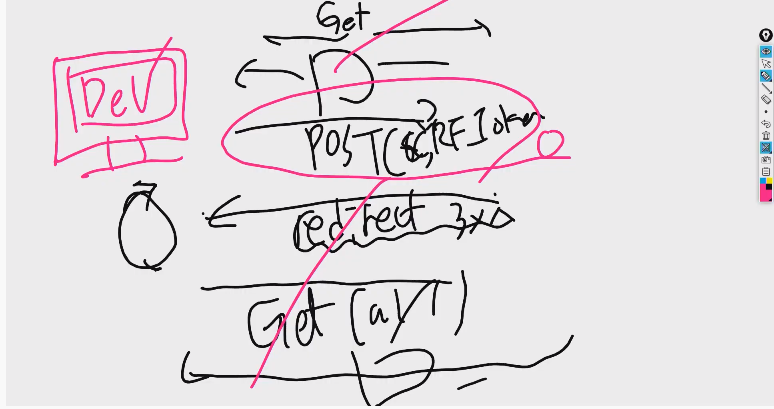 Get
DeV
POST(CSRF Token
redirect 3x
Get (a/1)